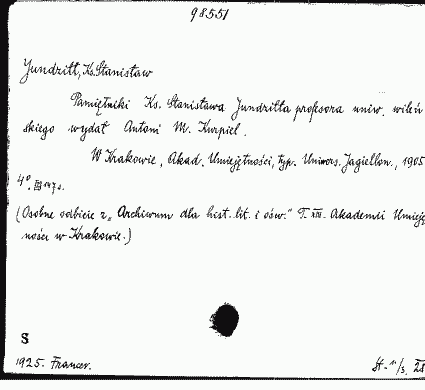 98551
Jundziłł, Ks. Stanisław
Pamiętniki Ks. Stanisława Jundziłła profesora uniw. wileń
skiego wydał Antoni M. Kurpiel.
W Krakowie, Akad. Umiejętności, typ. Univers. Jagiellon., 1905
4°.
(Osobne odbicie z „Archiwum dla hist. lit. i ośw." T. XIII. Akademii Umieję
ności w Krakowie.)
S
1925. Francer.